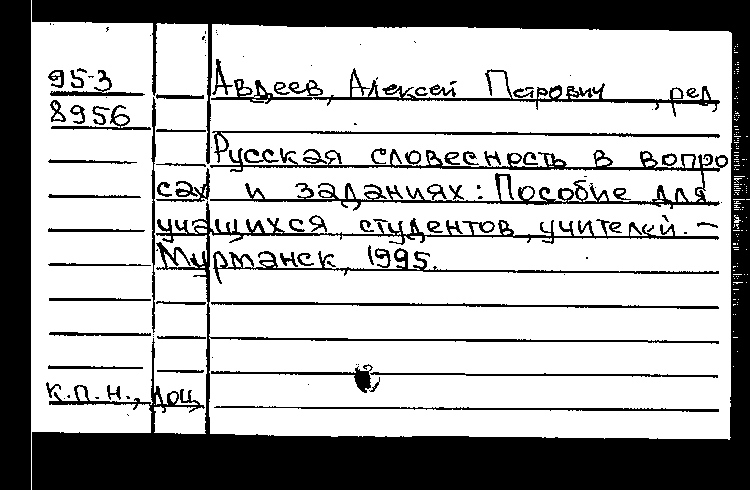 95-3 Авдеев, Алексей Петрович, ред.
8956
Русская словесность в вопро
сах и заданиях: Пособие для
учащихся, студентов, учителей. –
Мурманск, 1995.
к.п.н., доц.